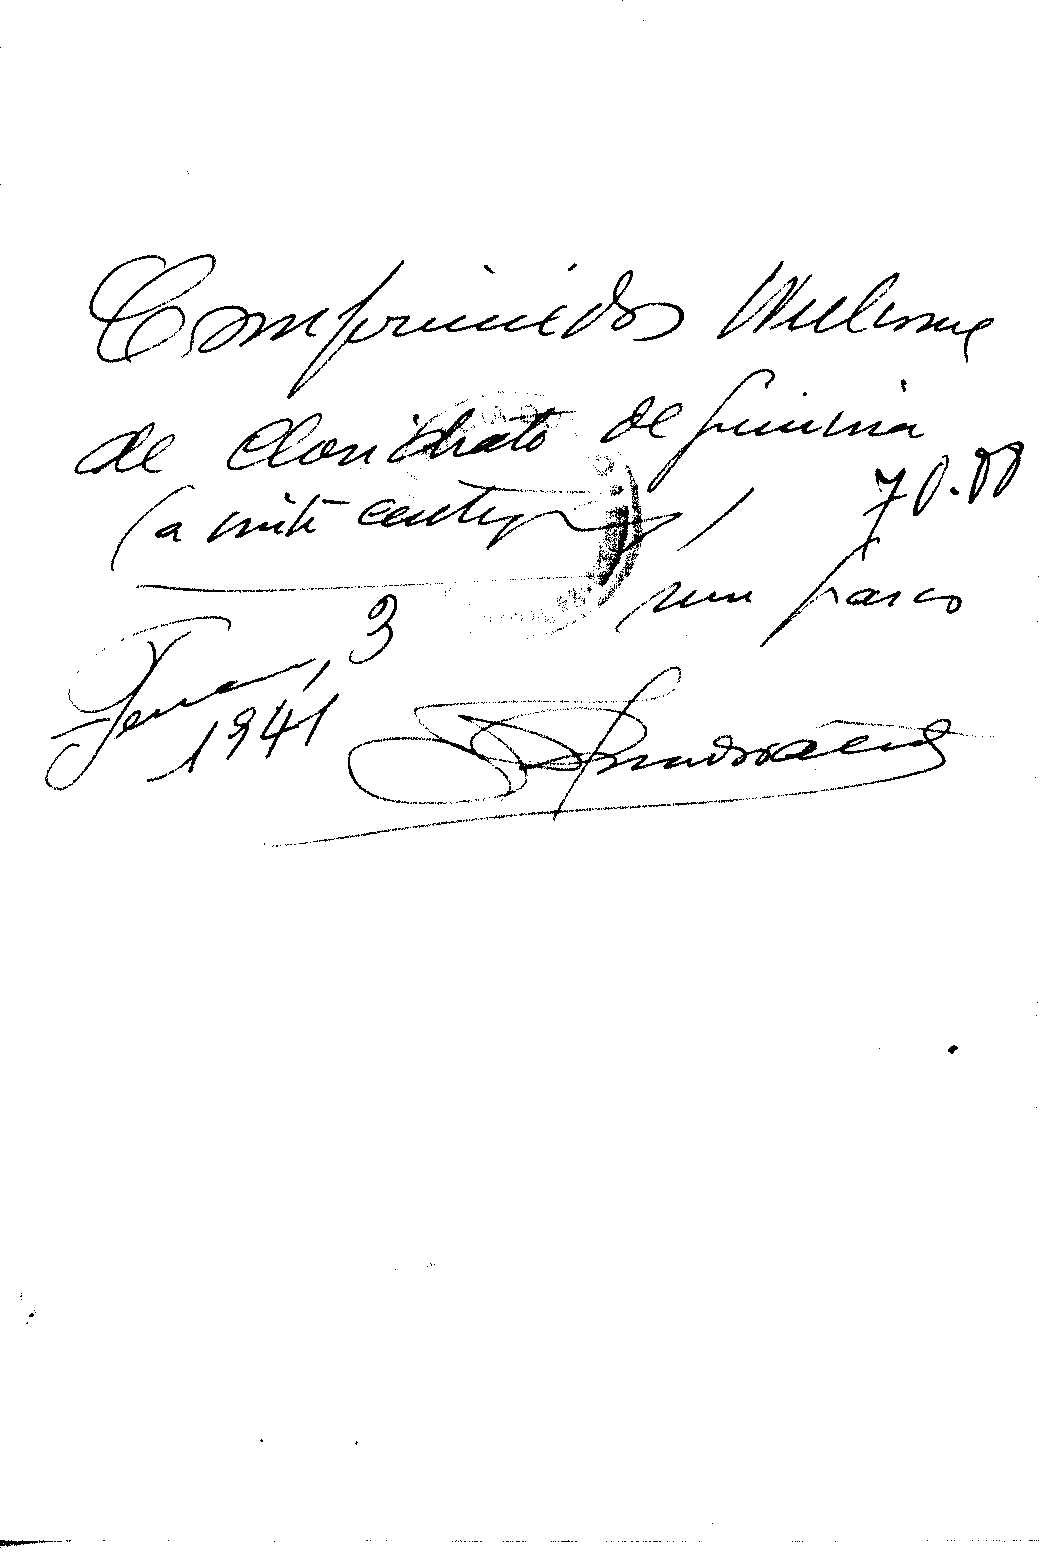 Comprimidos Wellcome
de Cloridrato de quinina
(a vinte centigr)
70.00
um frasco
3
1941